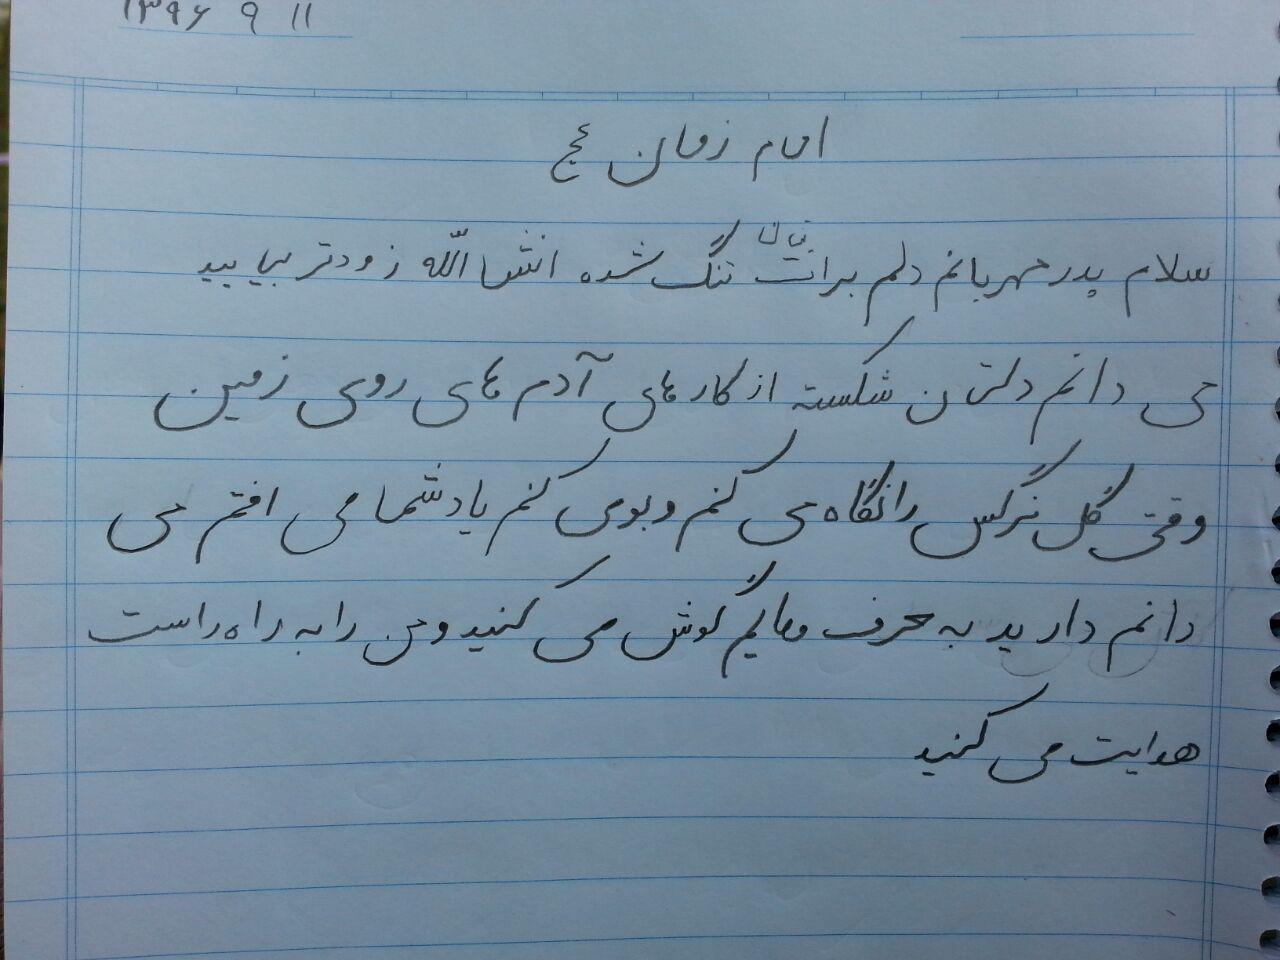 ۱۳۹۶ ۹ ۱۱
امام زمان عج
سلام پدر مهربانم دلم براتان تنگ شده انشا اللّه زودتر بیایید
می دانم دلتان شکسته از کارهای آدم های روی زمین
وقتی گل نرگس را نگاه می کنم و بوی کنم یاد شما می افتم می
دانم دارید به حرف هایم گوش می کنید و من را به راه راست
هدایت می کنید